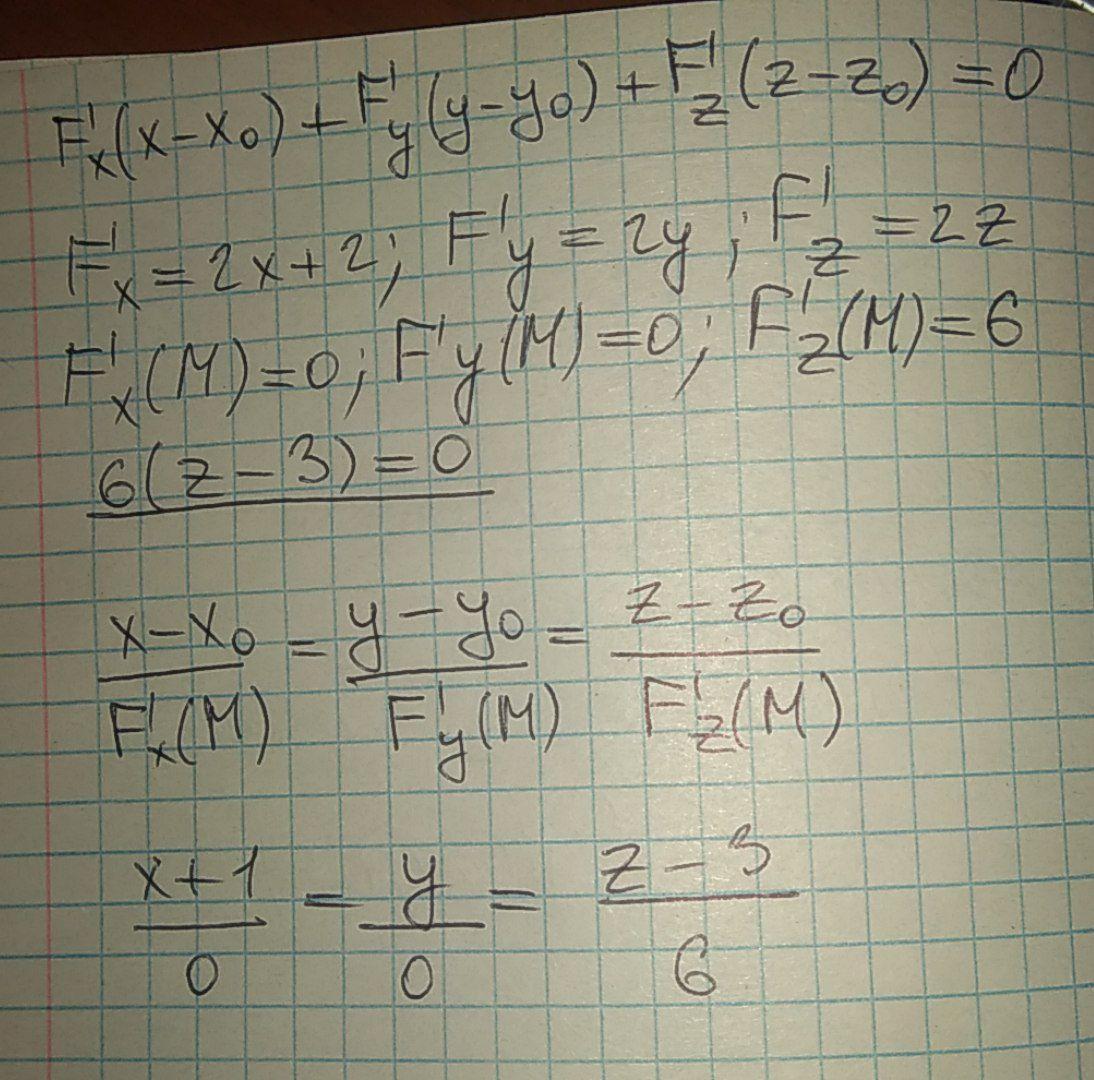 F'x(x-x₀)+F'y(y-y₀)+F'z(z-z₀)=0
F'x=2x+2; F'y=2y; F'z=2z
F'x(M)=0; F'y(M)=0; F'z(M)=6
6(z-3)=0
x-x₀/F'x(M) = y-y₀/F'y(M) = z-z₀/F'z(M)
x+1/0 = y/0 = z-3/6